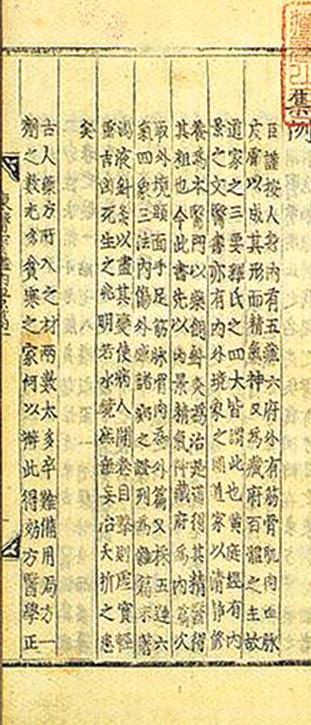 集例
臣謹按人身內有五藏六府外有筋骨肌肉血脉
皮膚以成其形而精氣神又爲藏府百體之主故
道家之三要釋氏之四大皆謂此也黃庭經有內
景之文醫書亦有內外境象之圖道家以清静修
養爲本醫門以藥餌鍼灸爲治是道得其精醫得
其粗也今此書先以內景精氣神藏府爲內篇次
取外境頭面手足筋脉骨肉爲外篇又採五運六
氣四象三法內傷外感諸病之證列爲雜篇末著
湯液針灸以盡其變使病人開卷目擊則虛實輕
重吉凶死生之兆明若水鏡庶無妄治夭折之患
矣
古人藥方所入之材兩數太多卒難備用局方一
劑之數尤多貧寒之家何以辦此得効方醫學正